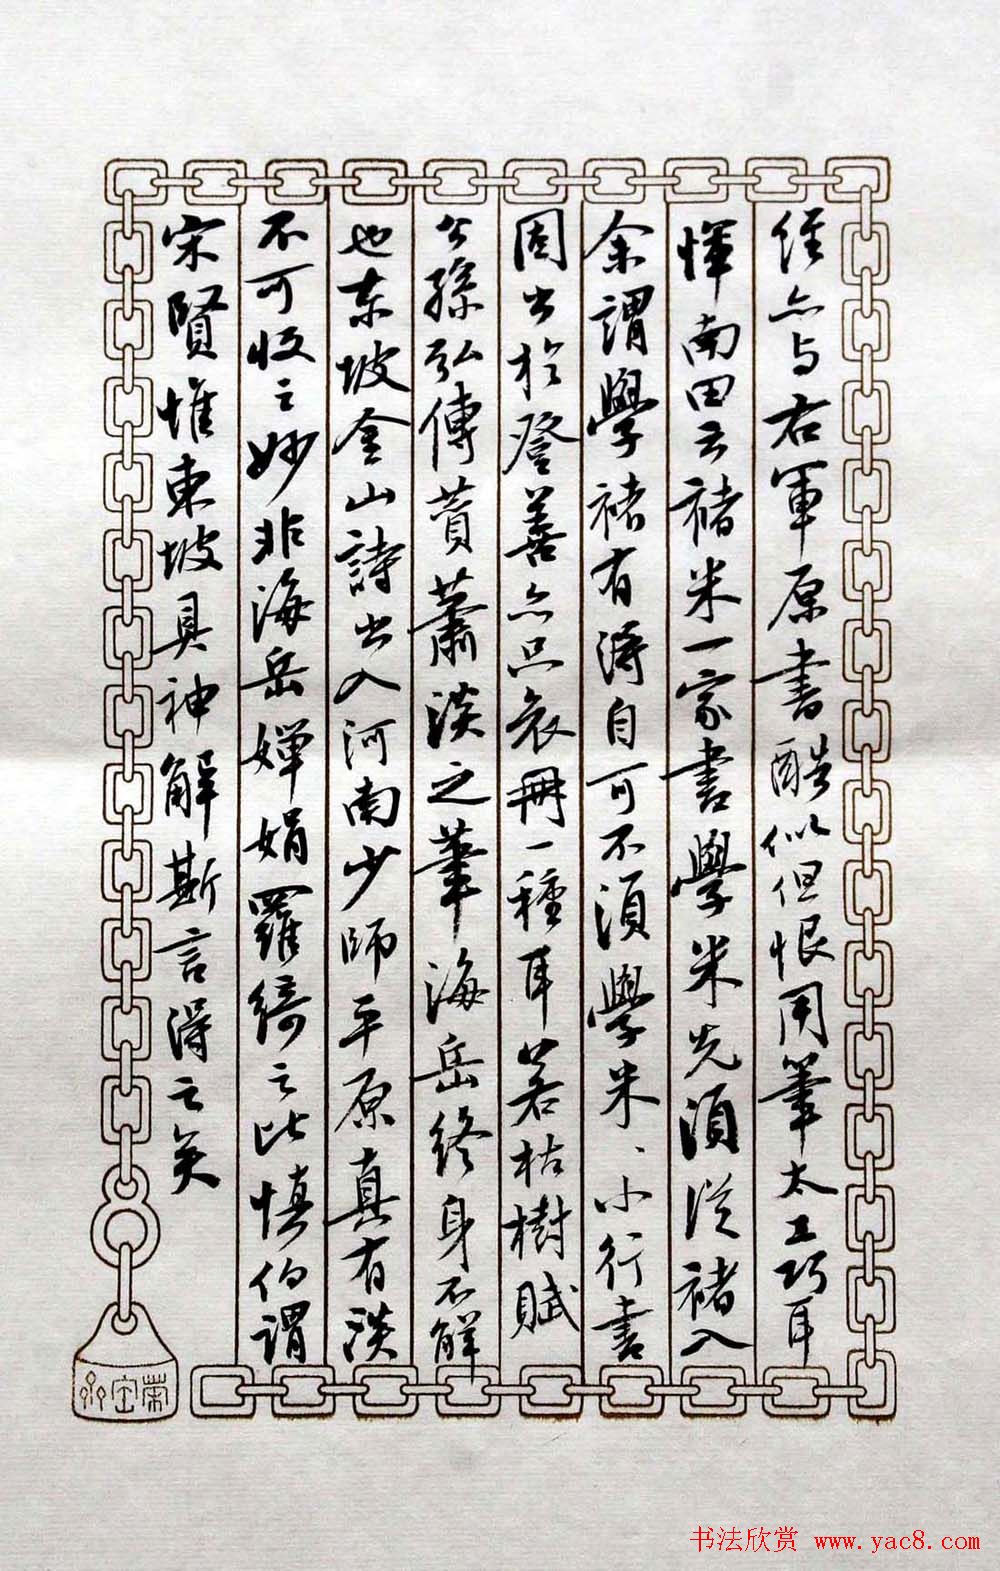 经亦与右軍原書酷似但恨用筆太工巧耳
惲南田云褚米一家書學米先須從褚入
余謂學褚有得自可不須學米、小行書
固出於登善亦只哀冊一種耳若枯樹賦
公孫弘傳贊蕭淡之筆海岳終身不解
也東坡金山詩出入河南少師平原真有淡
不可收之妙非海岳嬋娟羅綺之比慎伯謂
宋賢惟東坡具神解斯言得之矣
榮宝
书法欣赏 www.yac8.com